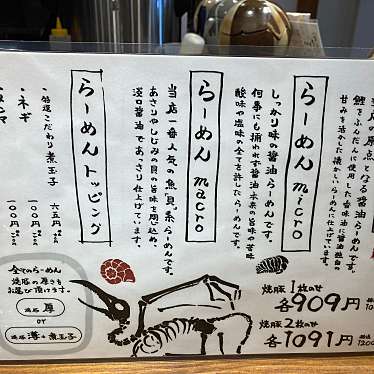 の原点となる醤油らーめん。
鰹をふんだんに使用した香味油に醤油独自の
甘みを活かした懐かしいらーめんに仕上げています。
らーめん micro
しっかり味の醤油らーめんです。
何事にも捕われず醤油本来の旨味や苦味
酸味や塩味の全てを許したらーめんです。
らーめん macro
当店一番人気の魚貝系らーめんです。
あさりやしじみの貝の旨味を閉じ込め
淡口醤油であっさり仕上げています。
らーめんトッピング
特選こだわり煮玉子 六五円
ネギ 一〇〇円
一〇〇円
全てのらーめん
焼豚の厚さを
お選び頂けます。
焼豚 厚
or
焼豚 薄+煮玉子
焼豚 1枚のせ
各909円
焼豚 2枚のせ
各1091円